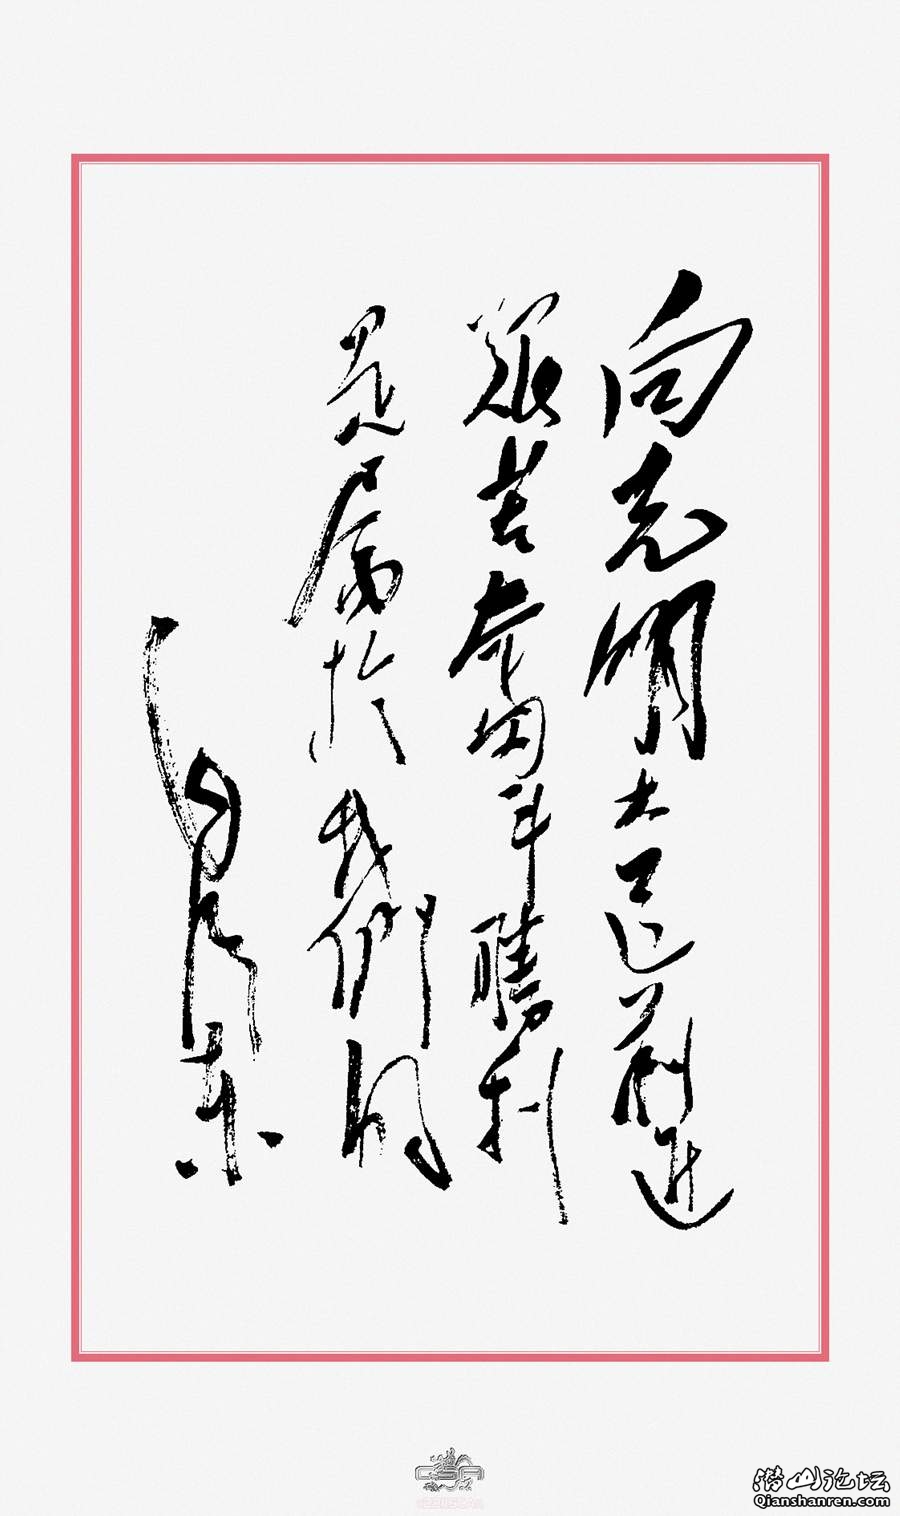 向光明大道前进
艰苦奋斗胜利
是属於我们的
毛泽东
潜山论坛
Qianshanren.com
CSA